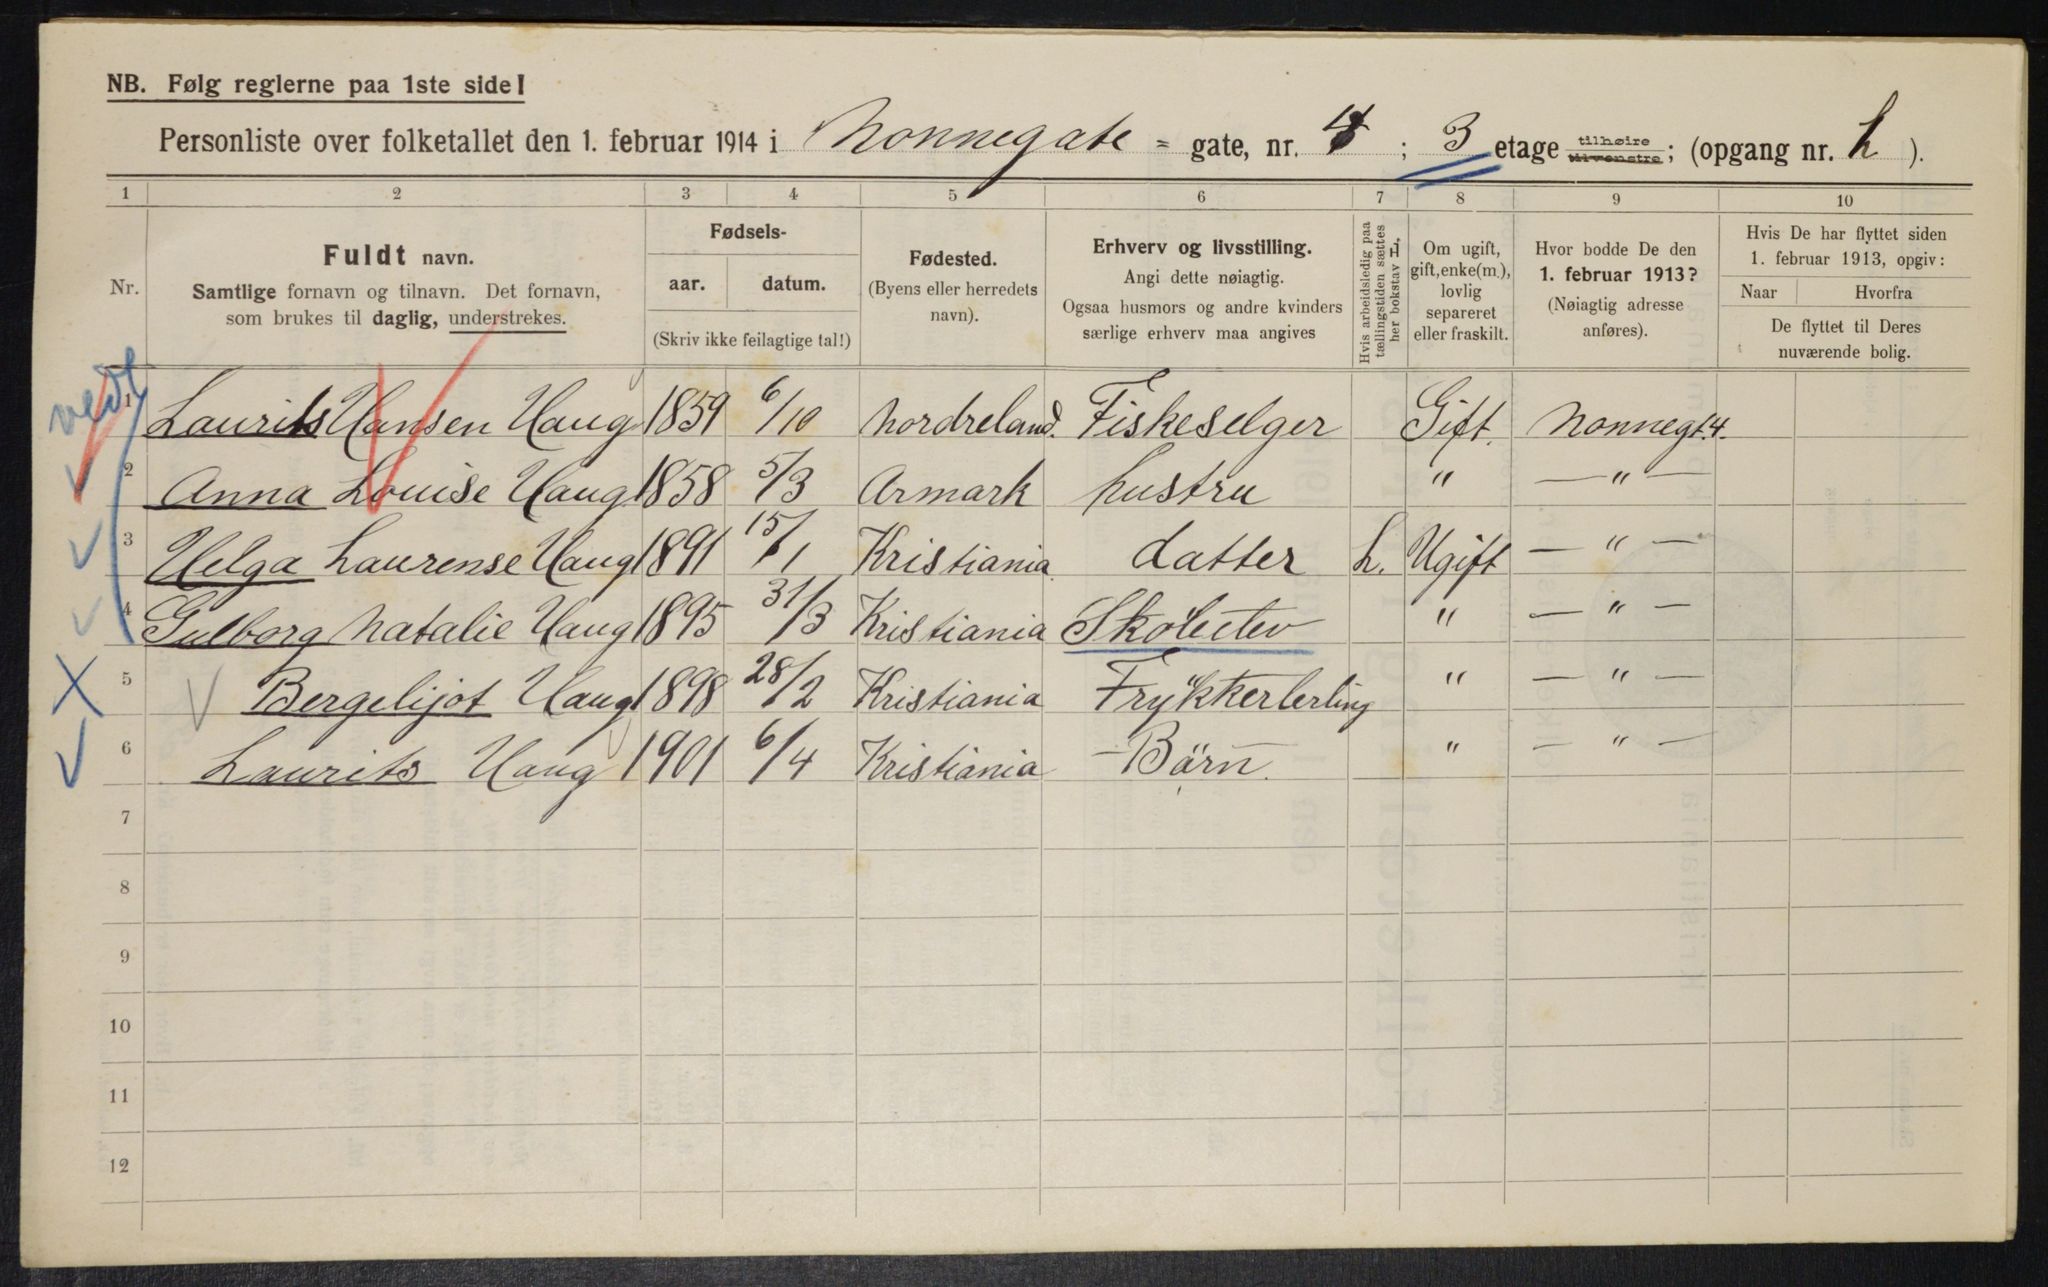 NB. Følg reglerne paa 1ste side!
Personliste over folketallet den 1. februar 1914 i Nonnegate = gate, nr. 4 ; 3 etage tilhøire tilvenstre ; (opgang nr. h ).
1 2 3 4 5 6 7 8 9 10
Nr.
Fuldt navn.
Samtlige fornavn og tilnavn. Det fornavn,
som brukes til daglig, understrekes.
Fødsels-
aar. datum.
(Skriv ikke feilagtige tal!)
Fødested.
(Byens eller herredets
navn).
Erhverv og livsstilling.
Angi dette nøiagtig.
Ogsaa husmors og andre kvinders
særlige erhverv maa angives
Hvis arbeidsledig paa
tællingstiden sættes
her bokstav L.
Om ugift,
gift, enke(m.),
lovlig
separeret
eller fraskilt.
Hvor bodde De den
1. februar 1913?
(Nøiagtig adresse
anføres).
Hvis De har flyttet siden
1. februar 1913, opgiv:
Naar Hvorfra
De flyttet til Deres
nuværende bolig.
1 Laurits Hansen Haug 1859 6/10 Nordreland. Fiskeselger Gift. Nonnegt. 4.
2 Anna Louise Haug 1858 5/3 Armark hustru " — " —
3 Helga Laurense Haug 1891 15/1 Kristiania. datter L. Ugift — " —
4 Gulborg Natalie Haug 1895 31/3 Kristiania Skoleelev " — " —
5 Bergelijot Haug 1898 28/2 Kristiania Frykkerlerling " — " —
6 Laurits Haug 1901 6/4 Kristiania — Børn. " — " —
7
8
9
10
11
12